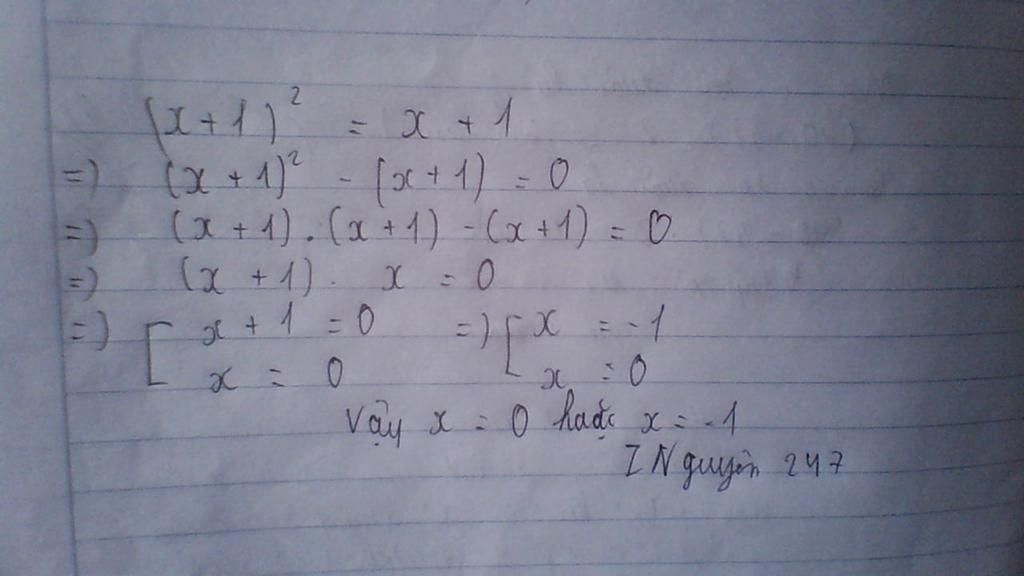 (x+1)² = x + 1
=) (x + 1)² - (x+1) = 0
=) (x + 1) . (x+1) - (x+1) = 0
=) (x + 1) . x = 0
=) [ x + 1 = 0 =) [ x = -1
x = 0 x = 0
Vậy x = 0 hoặc x = -1
INguyên 247